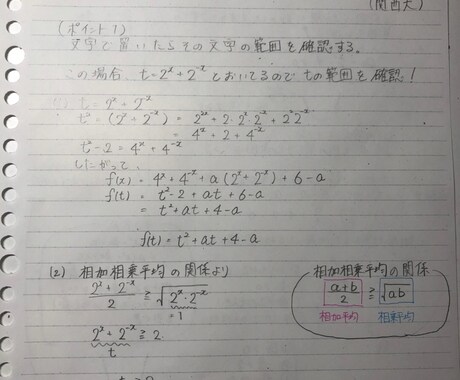 (関西大)
(ポイント1)
文字で置いたらその文字の範囲を確認する。
この場合、t=2ˣ+2⁻ˣとおいてるのでtの範囲を確認!
t=2ˣ+2⁻ˣ
t²=(2ˣ+2⁻ˣ)²=2²ˣ+2·2ˣ·2⁻ˣ+2⁻²ˣ
=4ˣ+2+4⁻ˣ
t²-2=4ˣ+4⁻ˣ
したがって、
f(x)=4ˣ+4⁻ˣ+a(2ˣ+2⁻ˣ)+6-a
f(t)=t²-2+at+6-a
=t²+at+4-a
f(t)=t²+at+4-a
(2) 相加相乗平均の関係より
(2ˣ+2⁻ˣ)/2≧√(2ˣ·2⁻ˣ)
=1
2ˣ+2⁻ˣ≧2
t
相加相乗平均の関係
(a+b)/2≧√ab
相加平均 相乗平均